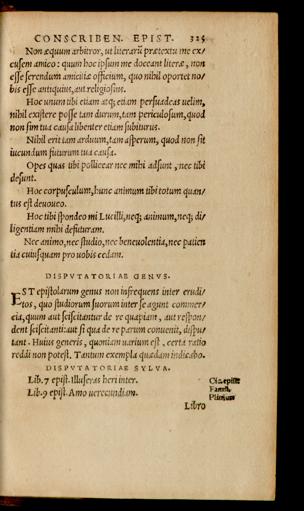 CONSCRIBEN. EPIST. 325
Non æquum arbitror, ut literarũ prætextu me ex/
cusem amico: quum hoc ipsum me doceant literæ, non
esse serendum amicitiæ officium, quo nihil oportet no/
bis esse antiquius, aut religiosius.
Hoc unum tibi etiam atq; etiam persuadeas uelim,
nihil existere posse tam durum, tam periculosum, quod
non sim tua causa libenter etiam subiturus.
Nihil erit tam arduum, tam asperum, quod non sit
iucundum futurum tua causa.
Opes quas tibi pollicear nec mihi adsunt, nec tibi
desunt.
Hoc corpusculum, hunc animum tibi totum quan/
tus est deuoueo.
Hoc tibi spondeo mi Lucilli, neq; animum, neq; di/
ligentiam mihi defuturam.
Nec animo, nec studio, nec beneuolentia, nec patien
tia cuiusquam pro uobis cedam.
DISPVTATORIAE GENVS.
EST epistolarum genus non infrequens inter erudi/
tos, quo studiorum suorum inter se agunt commer/
cia, quum aut sciscitantur de re quapiam, aut respon/
dent sciscitanti: aut si qua de re parum conuenit, dispu/
tant. Huius generis, quoniam uarium est, certa ratio
reddi non potest. Tantum exempla quædam indicabo.
DISPVTATORIAE SYLVA.
Lib. 7 epist. Illuseras heri inter.
Lib. 9 epist. Amo uerecundiam.
Cic. epist.
Famil.
Libro